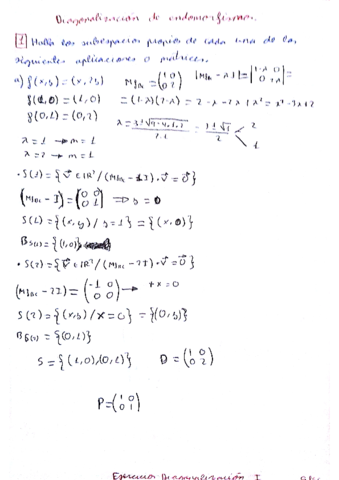 Diagonalización de endomorfismos.
1 Halla los subespacios propios de cada una de las
siguientes aplicaciones o matrices.
a) f(x,y) = (x, 2y) M_{fBc} = (1 0 / 0 2) |M_{fBc} - λI| = |1-λ 0 / 0 2-λ| =
f(1,0) = (1,0) = (1-λ)(2-λ) = 2-λ-2λ+λ² = λ²-3λ+2
f(0,1) = (0,2) λ = (3±√(9-4·1·2))/(2·1) = (3±√1)/2 < 2
1
λ=1 → m=1
λ=2 → m=1
· S(1) = {v⃗ ∈ ℝ² / (M_{fBc} - 1I)·v⃗ = 0⃗}
(M_{fBc} - I) = (0 0 / 0 1) ⇒ y = 0
S(1) = {(x,y) / = {(x,0)}
B_{S(1)} = {(1,0)}
· S(2) = {v⃗ ∈ ℝ² / (M_{fBc} - 2I)·v⃗ = 0⃗}
(M_{fBc} - 2I) = (-1 0 / 0 0) → x=0
S(2) = {(x,y) / x=0} = {(0,y)}
B_{S(2)} = {(0,1)}
S = {(1,0),(0,1)} D = (1 0 / 0 2)
P = (1 0 / 0 1)
Diagonalización I